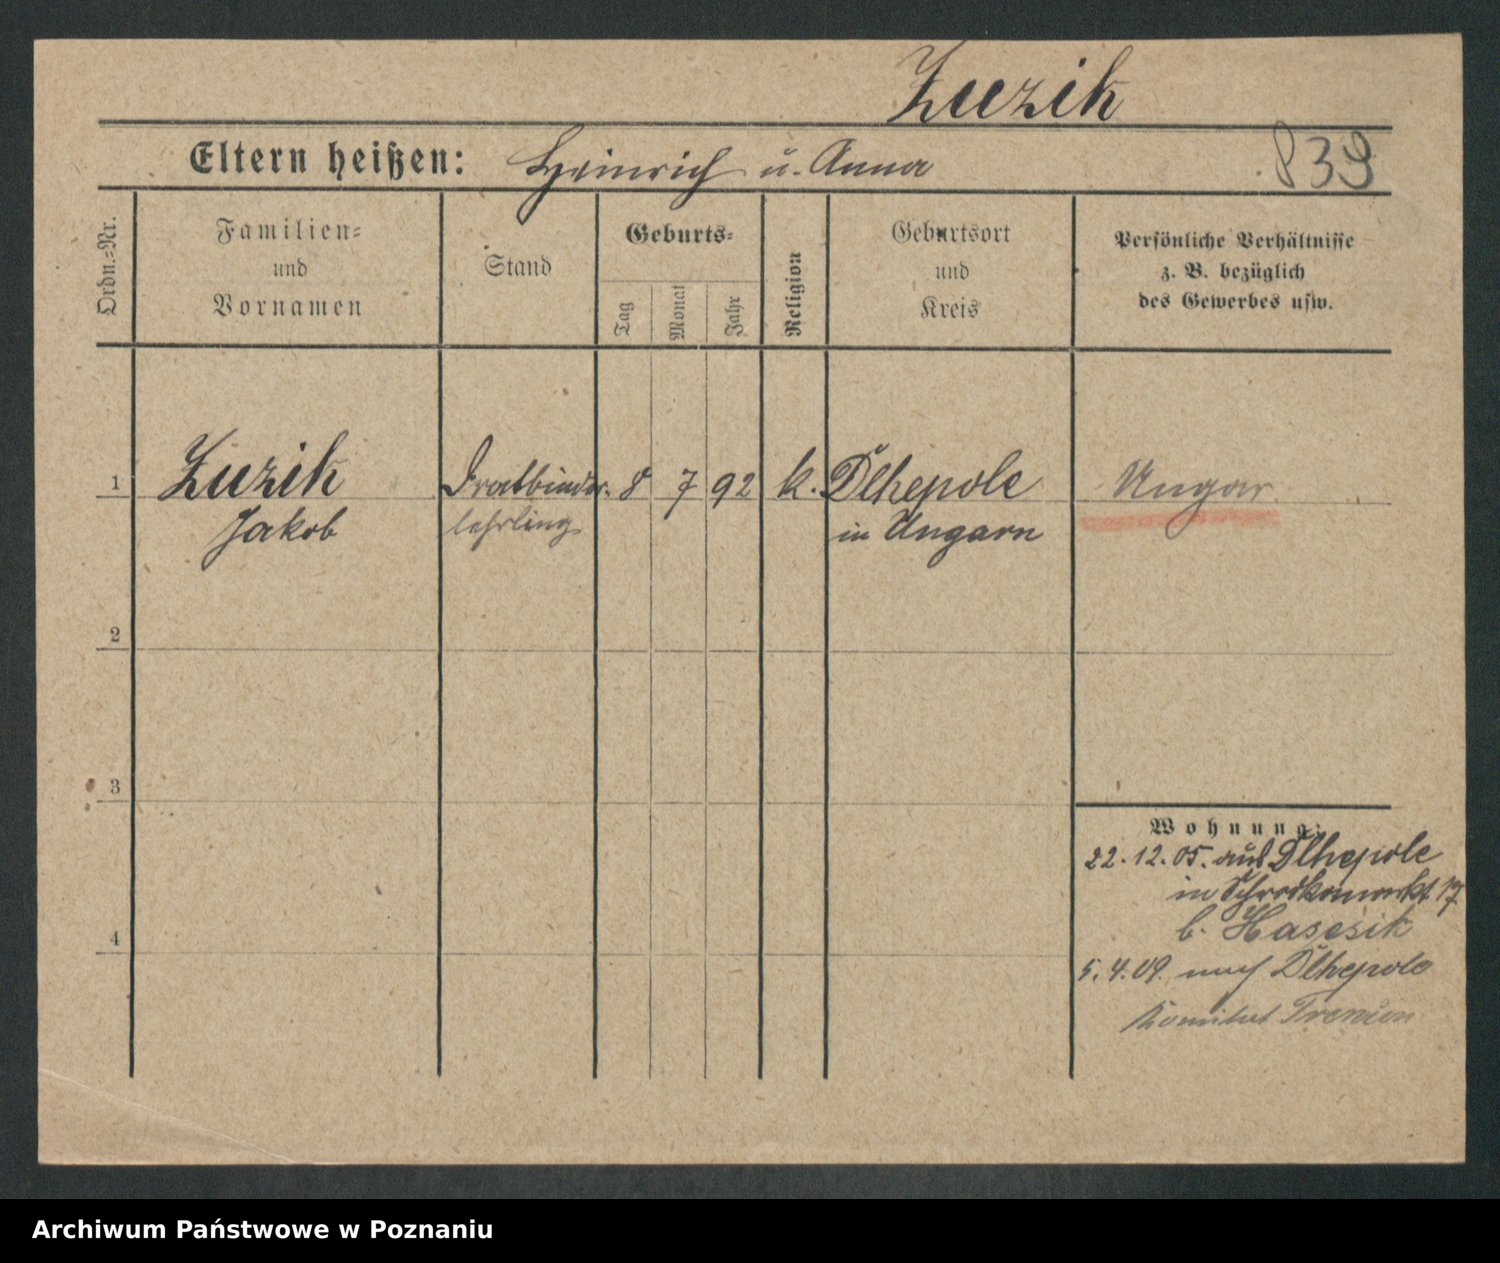 Zuzik
Eltern heißen: Heinrich u. Anna
839
Ordn.-Nr.
Familien-
und
Vornamen
Stand
Geburts-
Tag
Monat
Jahr
Religion
Geburtsort
und
Kreis
Persönliche Verhältnisse
z. B. bezüglich
des Gewerbes usw.
1 Zuzik Dratbinder- 8 7 92 k. Dlhepole Ungar
Jakob lehrling in Ungarn
2
3
4
Wohnung:
22.12.05. aus Dlhepole
in Schrodkamarkt 17
b. Hasesik
5.4.09. nach Dlhepole
Komitat Trencien
Archiwum Państwowe w Poznaniu